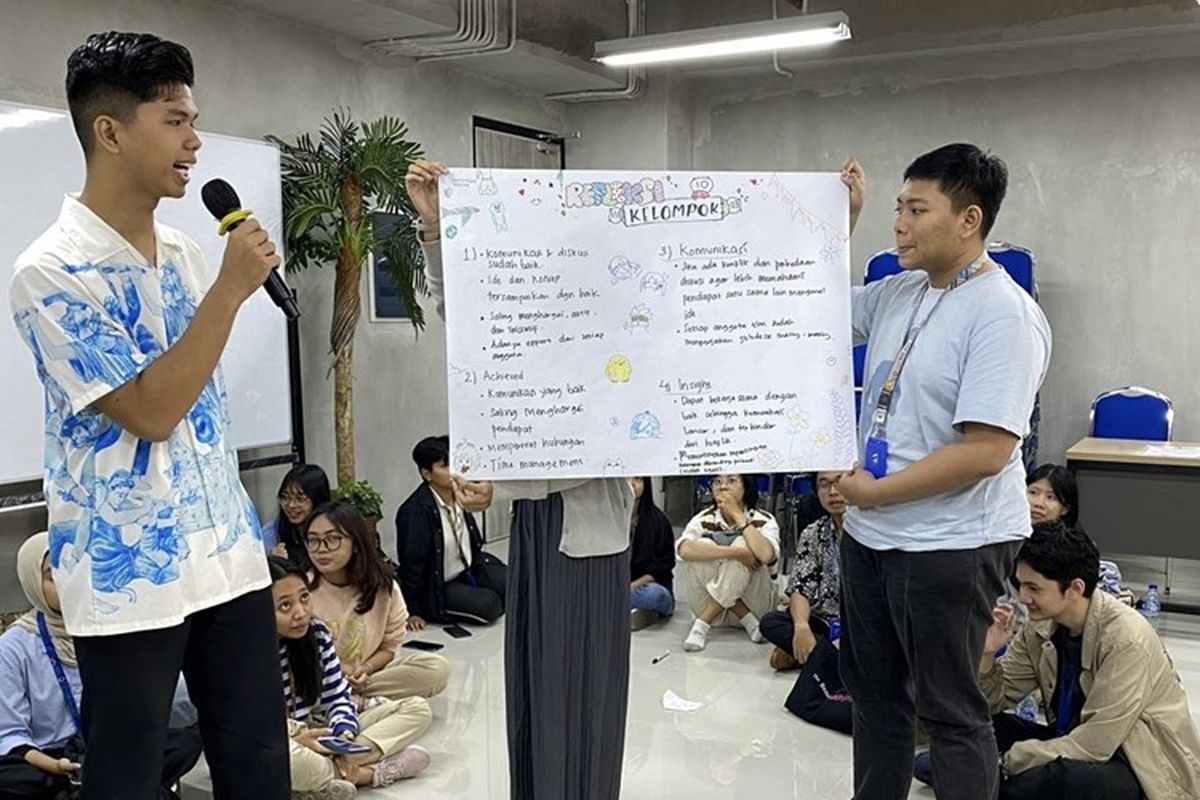 REFLEKSI
KELOMPOK 10
1) • Komunikasi & diskusi
sudah baik
• Ide dan konsep
tersampaikan dgn baik
• Saling menghargai, aktif
dan
• Adanya effort dari setiap
anggota.
2) Achieved
• Komunikasi yang baik
• Saling menghargai
pendapat
• Mempererat hubungan
• Time management
3) Komunikasi
• Jika ada konflik dan perbedaan
diskusi agar lebih memahami
pendapat satu sama lain mengenai
ide.
• Setiap anggota tim sudah
mengerjakan jobdesc masing-masing
4) Insight
• Dapat bekerjasama dengan
baik sehingga komunikasi
lancar, dan terhindar
dari konflik.
• Mementingkan kepentingan